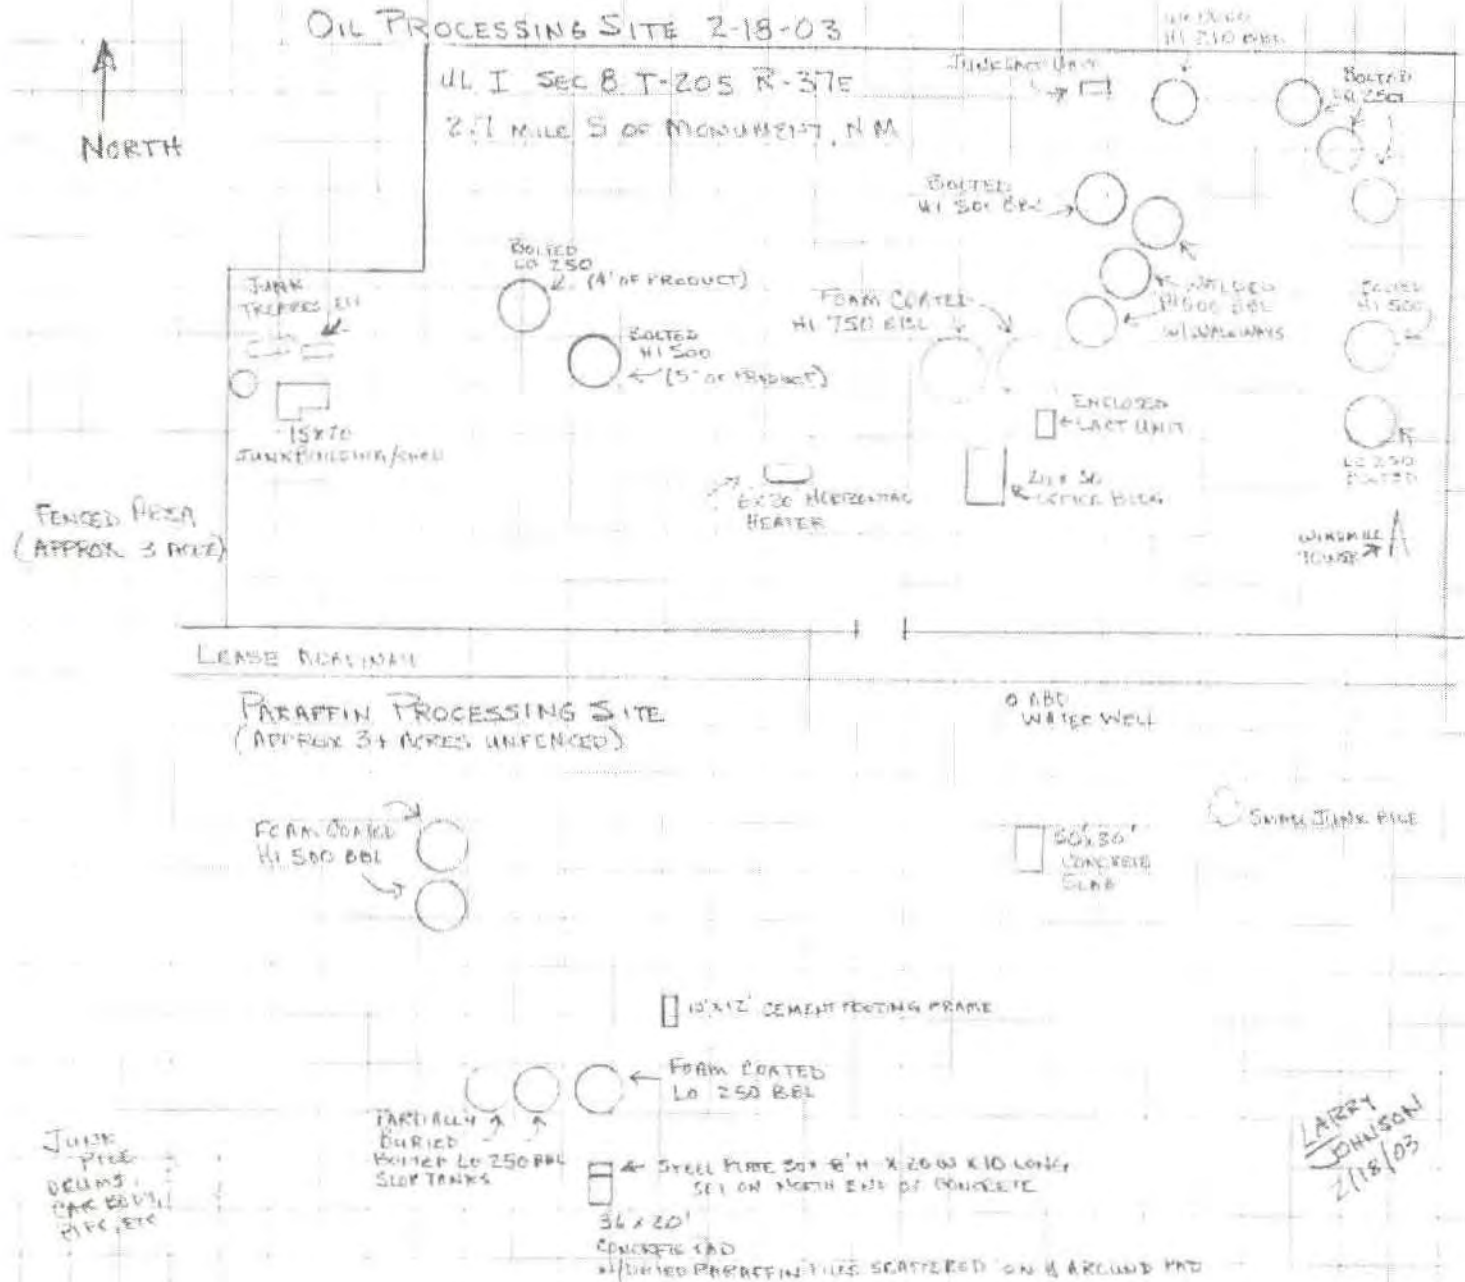 OIL PROCESSING SITE 2-18-03
NORTH
UL I SEC 8 T-20S R-37E
2.7 MILE S OF MONUMENT, NM
HI 210 BBL
JUNK LACT UNIT
BOLTED
LO 250
BOLTED
HI 500 BBL
BOLTED
LO 250
(4' OF PRODUCT)
JUNK
BOLTED
HI 500
(5' OF PRODUCT)
FOAM COATED
HI 750 BBL
WELDED
HI 500 BBL
W/WALKWAYS
BOLTED
HI 500
ENCLOSED
LACT UNIT
JUNK BUILDING/SHED
LO 250
BOLTED
HORIZONTAL
HEATER
OFFICE BLDG
WINDMILL
TOWER
FENCED AREA
(APPROX 3 ACRE)
LEASE ROADWAY
PARAFFIN PROCESSING SITE
(APPROX 3+ ACRES UNFENCED)
ABD
WATER WELL
FOAM COATED
HI 500 BBL
50'x30'
CONCRETE
SLAB
SMALL JUNK PILE
10'x12' CEMENT FOOTING FRAME
FOAM COATED
LO 250 BBL
PARTIALLY
BURIED
BOLTED LO 250 BBL
SLOP TANKS
JUNK
PILE
DRUMS,
CAR BODY,
PIPE, ETC
STEEL PLATE BOX 8'H x 20W x 10 LONG,
SET ON NORTH END OF CONCRETE
36 x 20'
CONCRETE PAD
W/DRIED PARAFFIN PILES SCATTERED ON & AROUND PAD
LARRY
JOHNSON
2/18/03